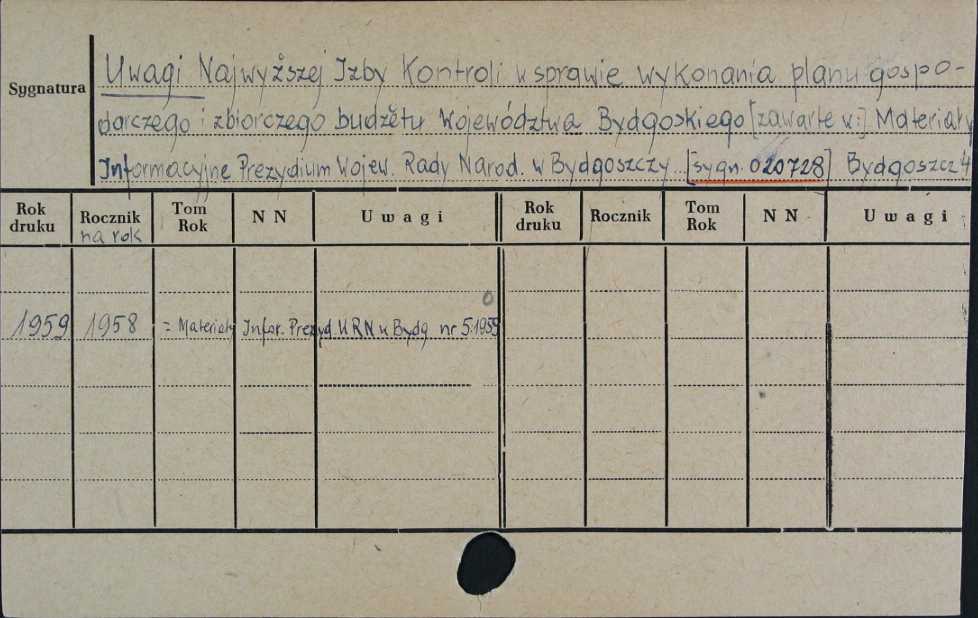 Sygnatura
Uwagi Najwyższej Izby Kontroli w sprawie wykonania planu gospo-
darczego i zbiorczego budżetu województwa Bydgoskiego [zawarte w:] Materiały
Informacyjne Prezydium Wojew. Rady Narod. w Bydgoszczy [sygn. 020728] Bydgoszcz
Rok druku Rocznik na rok Tom Rok NN Uwagi Rok druku Rocznik Tom Rok NN Uwagi
1959 1958 = Materiały Infor. Prezyd. WRN w Bydg nr 5:1959